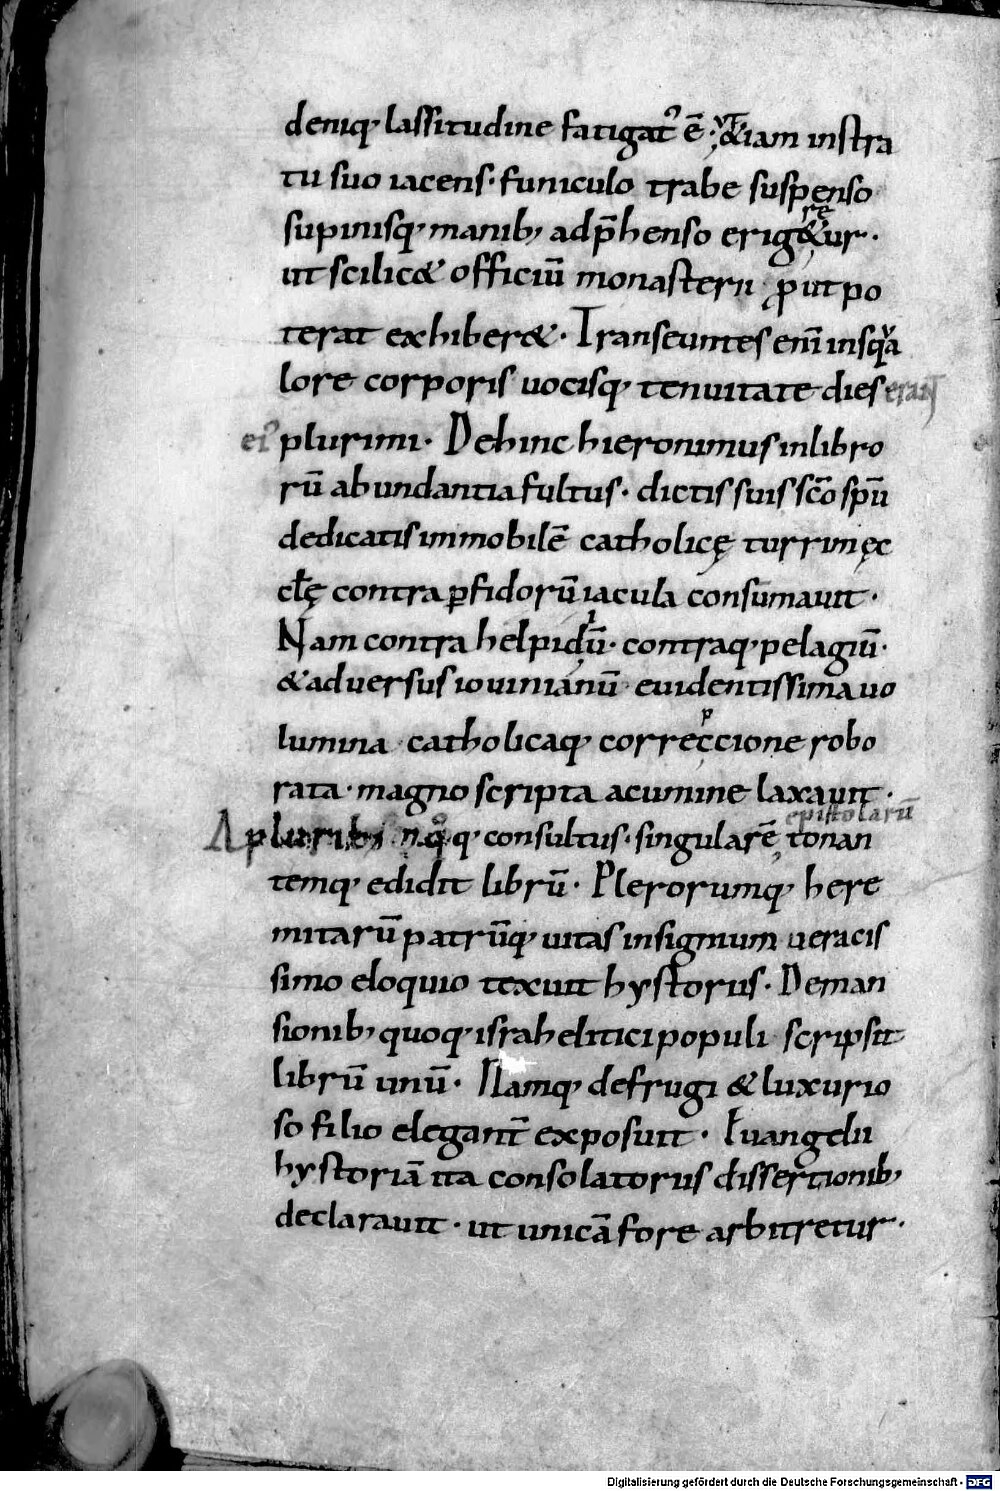 deniq; lassitudine fatigat᾽ ē· ut &iam instra
tu suo iacens· funiculo trabe suspenso
supinisq; manib; adp̄henso erig&ur· re
ut scilic& officiū monasterii ꝓut po
terat exhiber&· Transeuntes eni᷒ insq̊a
lore corporis uocisq; tenuitate dies erant
ei᾽ plurimi· Dehinc hieronimus inlibro
rū abundantia fultus· dictis suis sc̄o sp̄u
dedicatis immobilē catholicę turrim ęc
cl̄ę contra ꝑfidorū iacula consumauit·
Nam contra helpidiū· contraq; pelagiū·
&aduersus iouinianū euidentissima uo
lumina catholicaq; correpcione robo
rata· magno scripta acumine laxauit·
A pluribus n.q̊q; consultus· singularē epistolarū tonan
temq; edidit librū· Plerorumq; here
mitarū patrūq; uitas insignium ueracis
simo eloquio texuit hystorus· Deman
sionib; quoq; israhelitici populi scripsit
librū unū· Namq; defrugi & luxurio
so filio elegant̄ exposuit· Euangelii
hystoriā ita consolatorus dissertionib;
declarauit· ut unicā fore arbitretur·
Digitalisierung gefördert durch die Deutsche Forschungsgemeinschaft - DFG